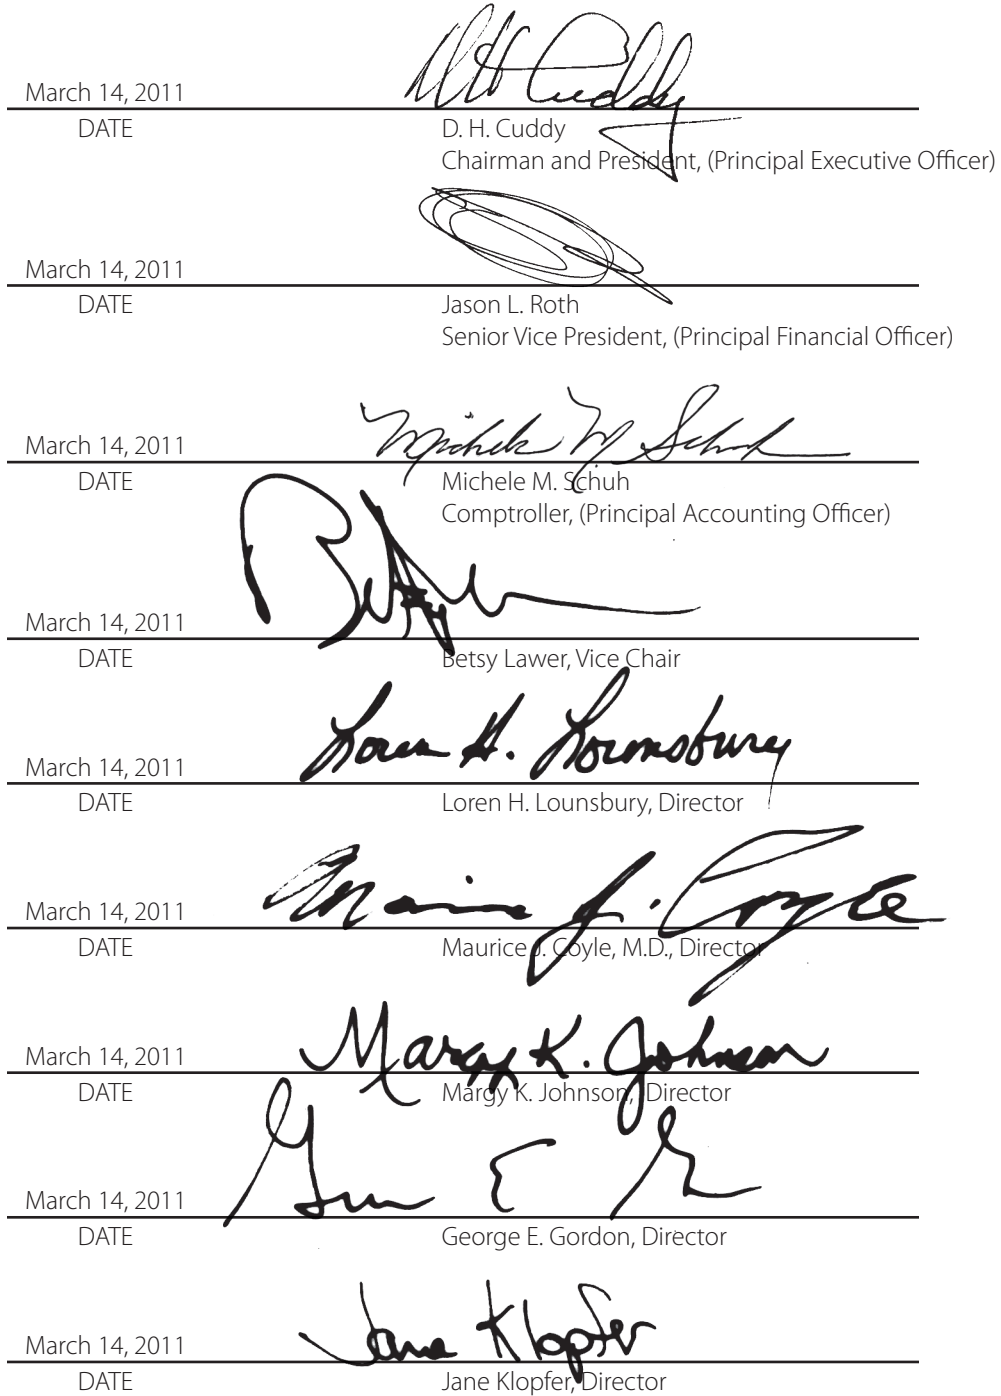 DH Cuddy
March 14, 2011
DATE D. H. Cuddy
Chairman and President, (Principal Executive Officer)
March 14, 2011
DATE Jason L. Roth
Senior Vice President, (Principal Financial Officer)
March 14, 2011 Michele M Schuh
DATE Michele M. Schuh
Comptroller, (Principal Accounting Officer)
March 14, 2011
DATE Betsy Lawer, Vice Chair
March 14, 2011 Loren H. Lounsbury
DATE Loren H. Lounsbury, Director
March 14, 2011 J. Coyle
DATE Maurice J. Coyle, M.D., Director
March 14, 2011 Margy K. Johnson
DATE Margy K. Johnson, Director
March 14, 2011
DATE George E. Gordon, Director
March 14, 2011 Jane Klopfer
DATE Jane Klopfer, Director